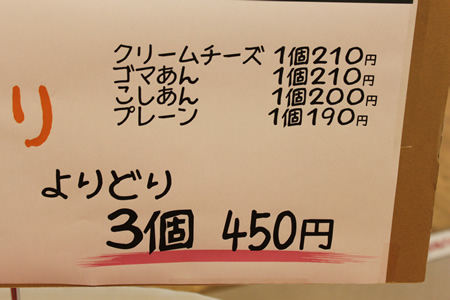 クリームチーズ 1個210円
ゴマあん 1個210円
こしあん 1個200円
プレーン 1個190円
り
よりどり
3個 450円